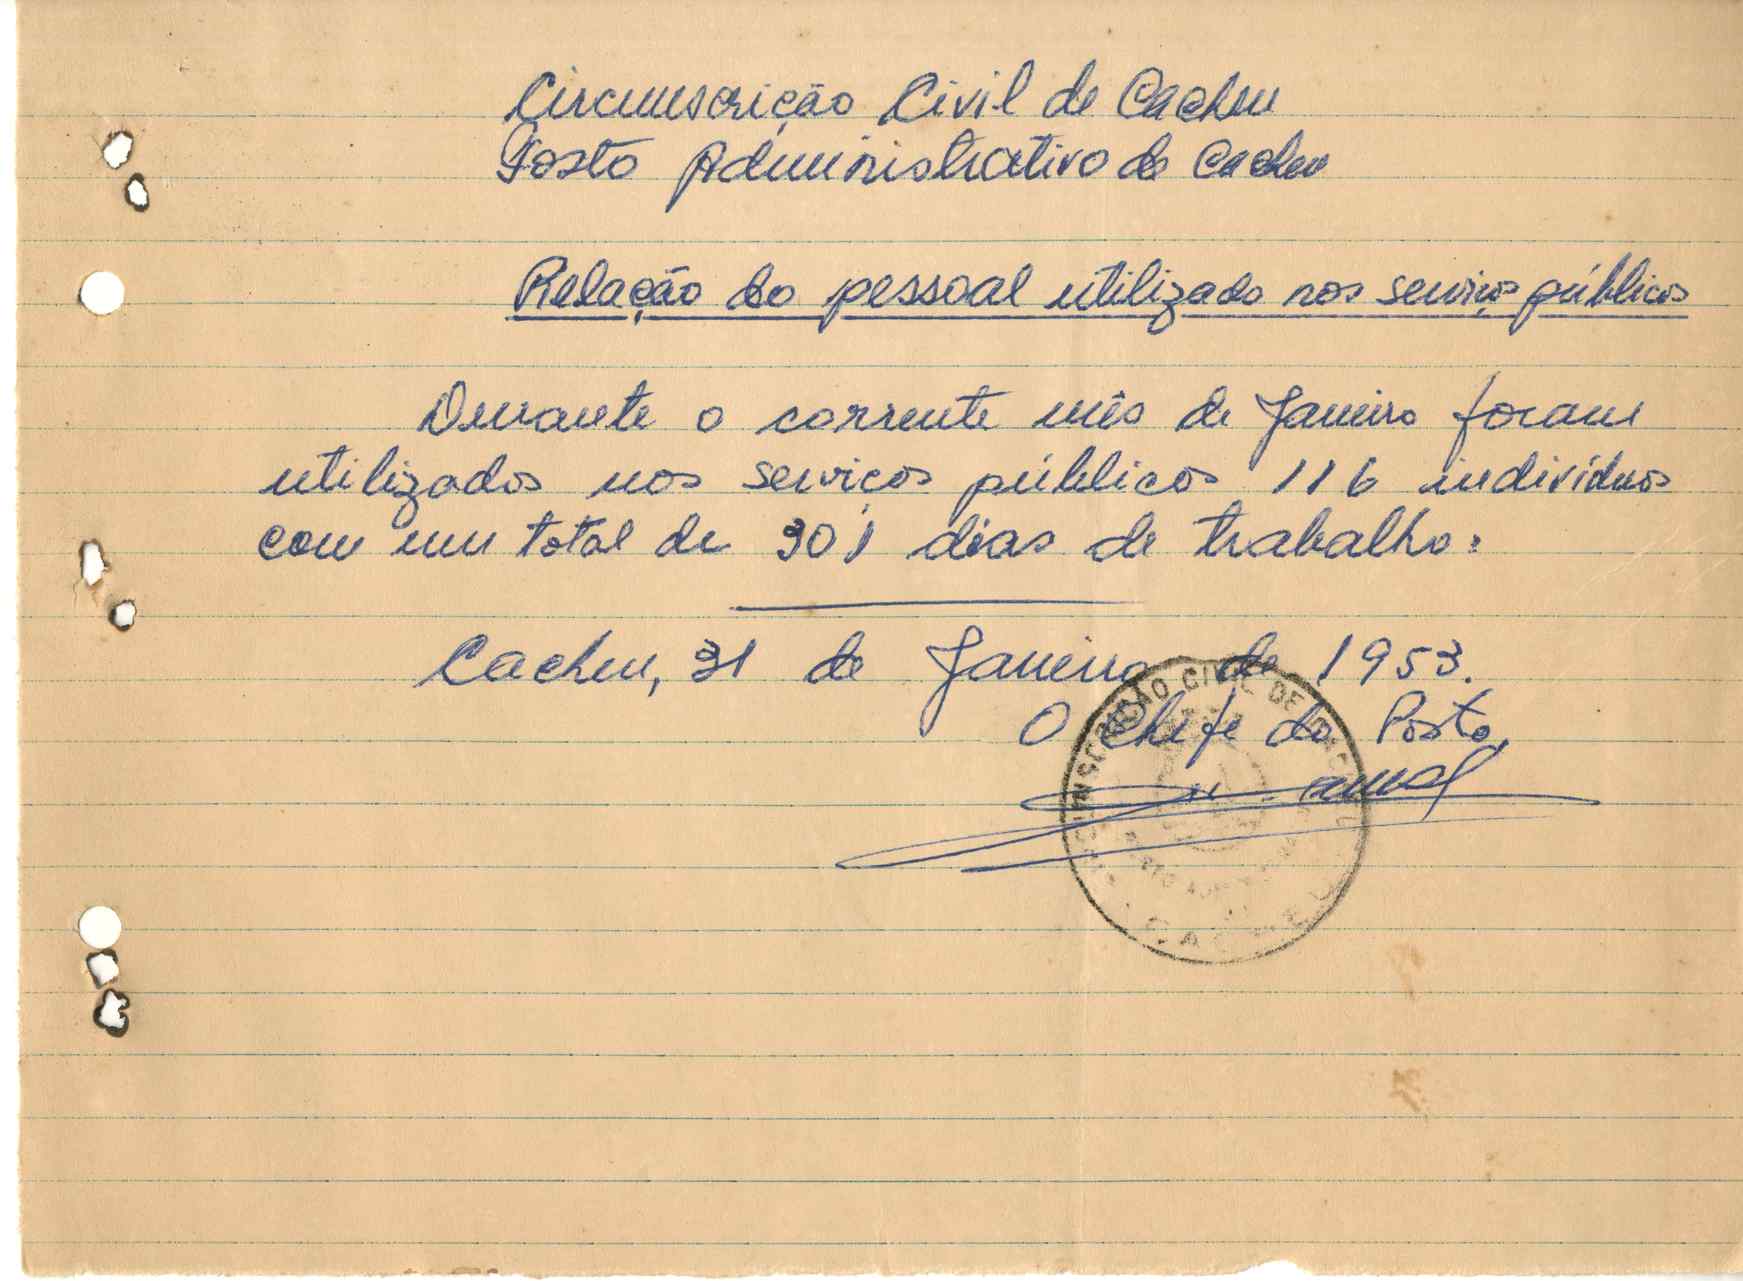 Circunscrição Civil de Cacheu
Posto Administrativo de Cacheu
Relação do pessoal utilizado nos serviços públicos
Durante o corrente mês de Janeiro foram
utilizados nos serviços públicos 116 indivíduos
com um total de 301 dias de trabalho.
Cacheu, 31 de Janeiro de 1953.
O Chefe do Posto,
CIVIL DE